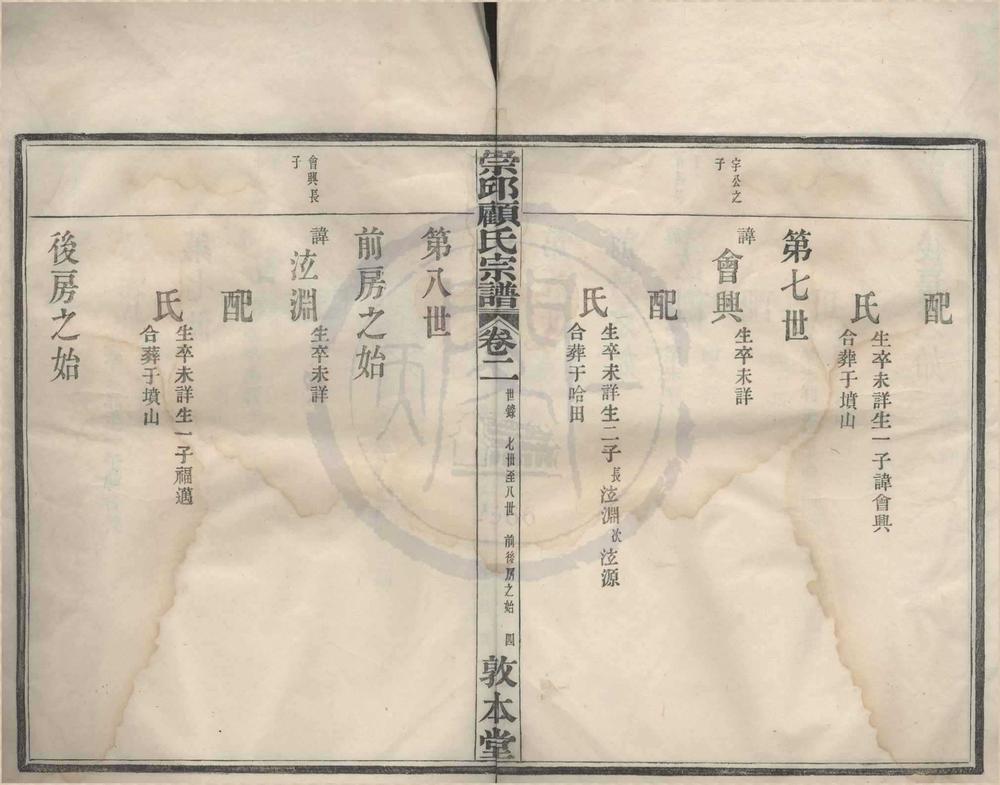 配
氏
生卒未詳生一子諱會興
合葬于墳山
第七世
宇公之
子
諱
會興
生卒未詳
配
氏
生卒未詳生二子長泣淵次泣源
合葬于哈田
崇邱顧氏宗譜
卷二
世錄
七世至八世
前後房之始
四
敦本堂
第八世
前房之始
會興長
子
諱
泣淵
生卒未詳
配
氏
生卒未詳生一子福邁
合葬于墳山
後房之始